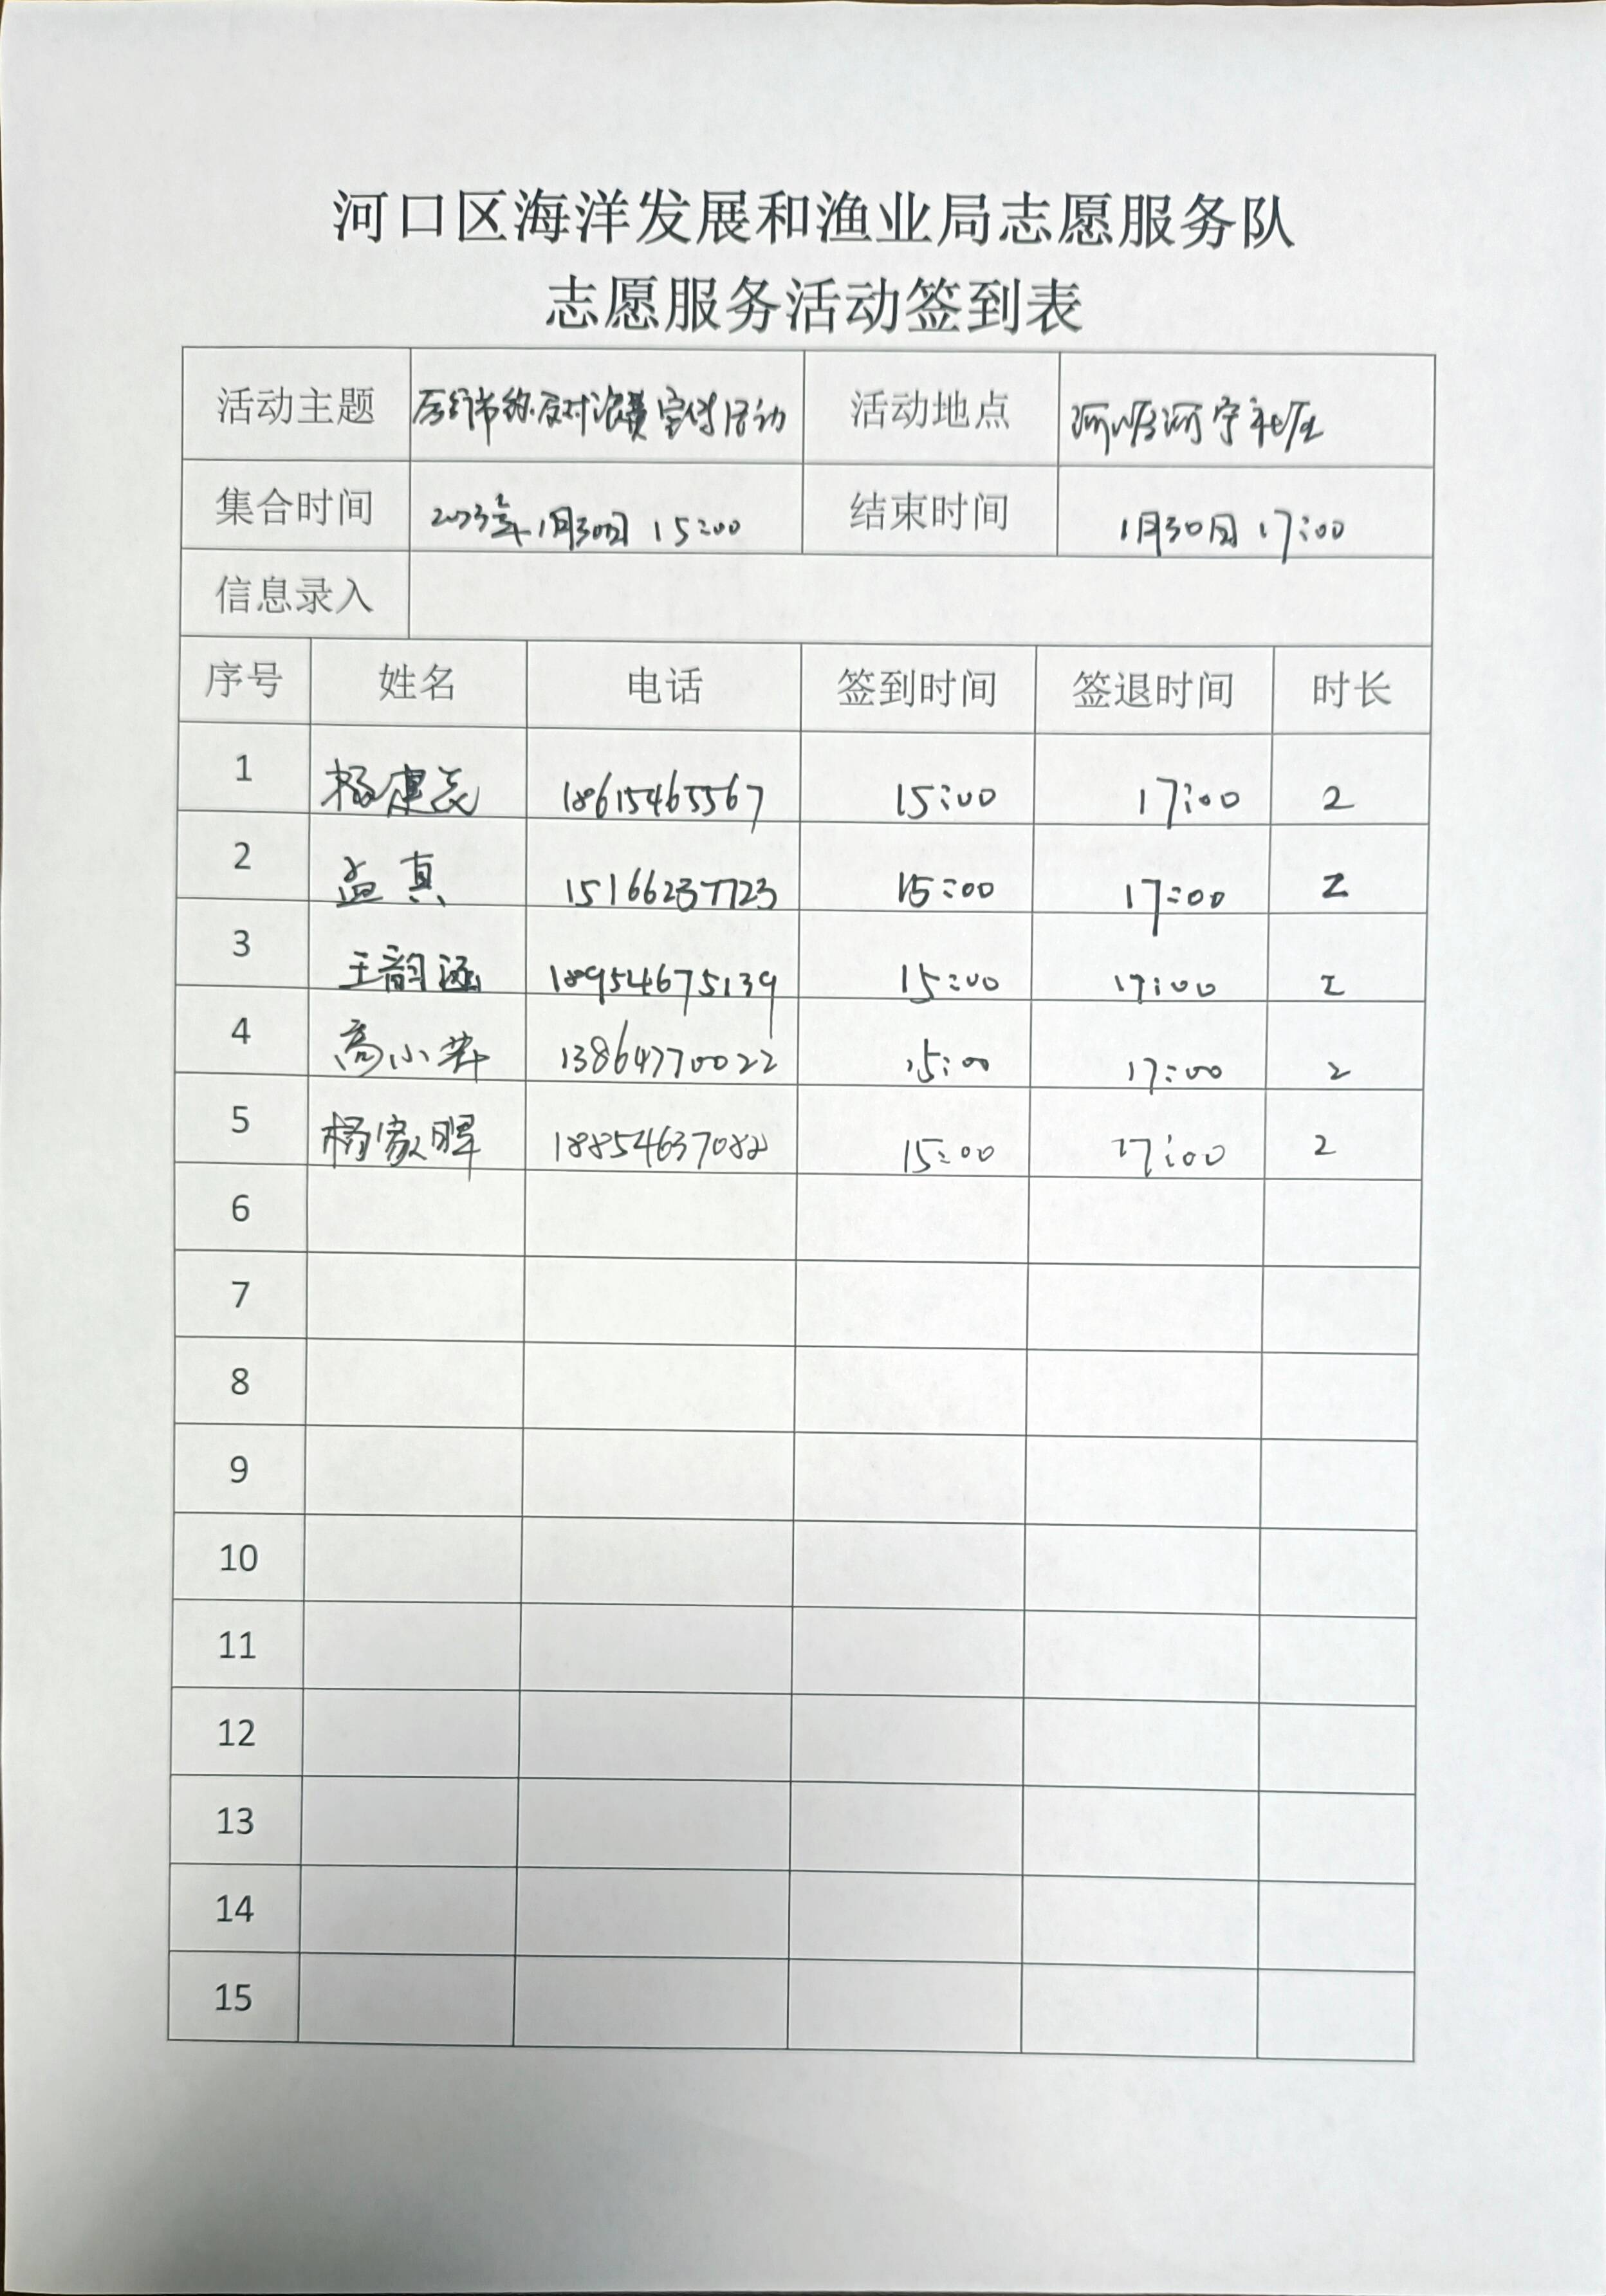 河口区海洋发展和渔业局志愿服务队
志愿服务活动签到表
活动主题 厉行节约.反对浪费宣传活动 活动地点 河口区河宁社区
集合时间 2023年1月30日 15:00 结束时间 1月30日 17:00
信息录入
序号 姓名 电话 签到时间 签退时间 时长
1 杨建 18615465567 15:00 17:00 2
2 孟真 15166237723 15:00 17:00 2
3 王韵涵 18954675139 15:00 17:00 2
4 高小 13864770022 15:00 17:00 2
5 杨家晖 18854637082 15:00 17:00 2
6
7
8
9
10
11
12
13
14
15